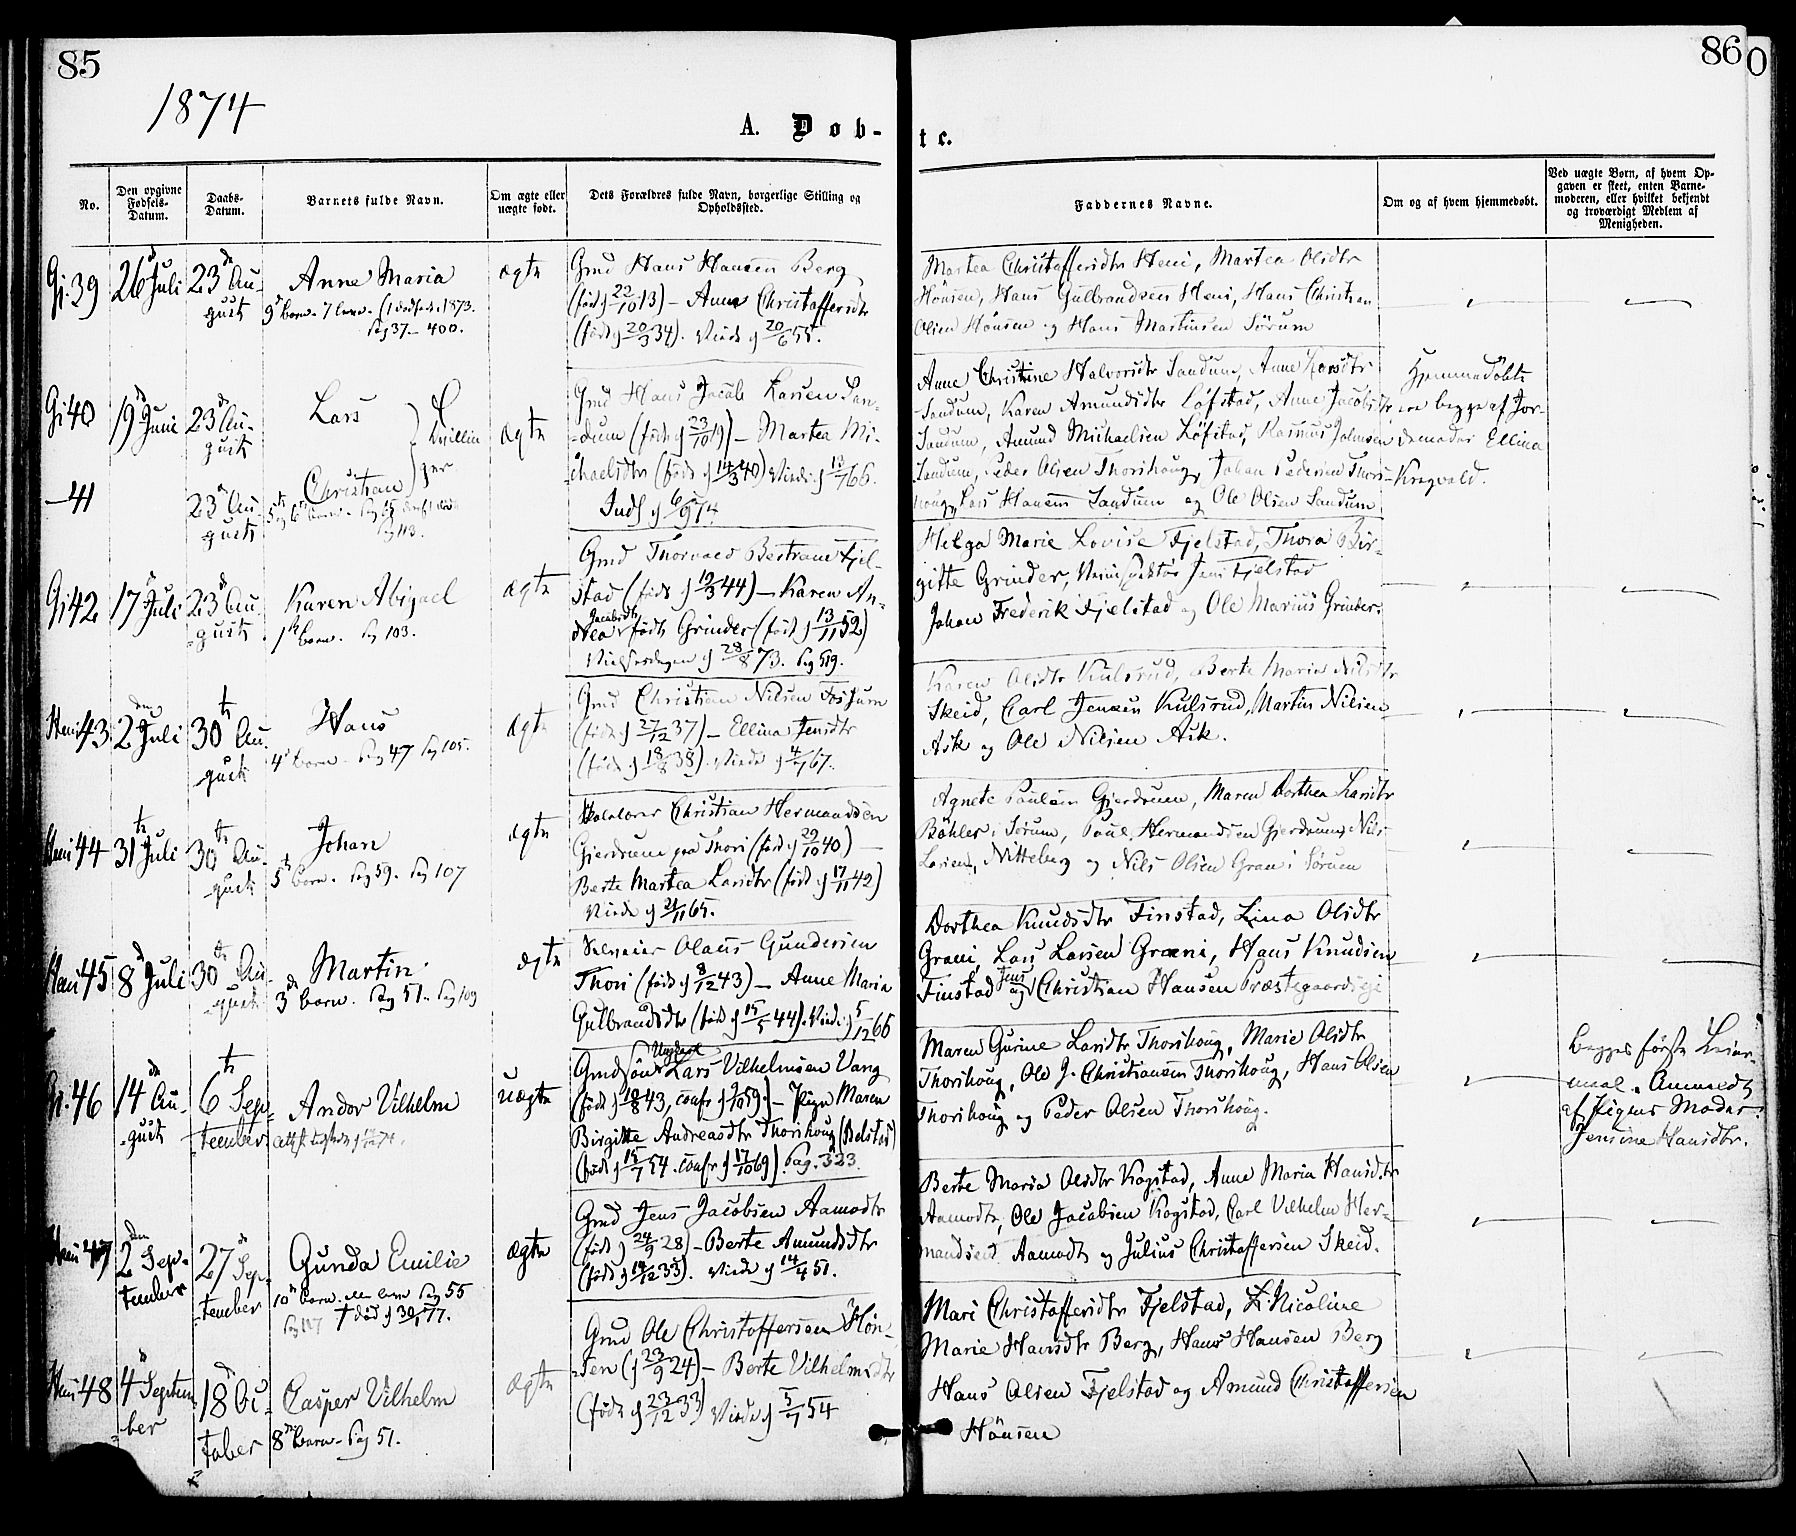 85
86
0
1874
A. Døb-
te.
No.
Den opgivne Fødsels-Datum.
Daabs-Datum.
Barnets fulde Navn.
Om ægte eller uægte født.
Dets Forældres fulde Navn, borgerlige Stilling og Opholdssted.
Faddernes Navne.
Om og af hvem hjemmedøbt.
Ved uægte Børn, af hvem Opgaven er skeet, enten Barnemoderen, eller hvilket bekjendt og troværdigt Medlem af Menigheden.
Gi. 39
26 Juli
23 Au-
gust
Anne Maria
9 barn. 7 leve.
Pag 37 - 400.
ægte
Gmd Hans Hansen Berg
(født 22/10 13) - Anne Christoffersdtr
(født 20/3 34). Viede 20/6 55.
Martea Christoffersdtr Heni, Martea Olsdtr
Hönsen, Hans Gulbrandsen Heni, Hans Christian
Olsen Hönsen og Hans Martinsen Sörum
Gi 40
19 Juni
23 Au-
gust
Lars
Tvillin
ger
ægte
Gmd Hans Jacob Larsen San-
dum (født 23/10 19) - Martea Mi-
chaelsdtr (født 14/3 40) Viede 66.
Inds 6/9 74
Anne Christine Halvorsdtr Sandum, Anne Larsdtr
Sandum, Karen Amundsdtr Löfstad, Anne Jacobsdtr
Sandum, Amund Michaelsen Löfstad, Rasmus Johnsen
Sandum, Peder Olsen Thorshoug, Johan Pedersen Thors-
houg, Lars Hansen Sandum og Ole Olsen Sandum
Hjemmedöbte
ere begge af Jor-
demoder Ellina
Kragvold.
- 41
23 Au
gust
Christian
5 og 6 barn. Pag 65
Pag 113.
Gi 42
17 Juli
23 Au
gust
Karen Abigael
1ste barn. Pag 103.
ægte
Gmd Thorvald Bertram Fjel-
stad (født 12/3 44) - Karen An-
drea Jacobsdtr født Grinder (født 13/11 52)
Vielsesdagen 28/8 73. Pag 519.
Helga Marie Lovise Fjelstad, Thora Bir-
gitte Grinder, Jens Fjelstad
Johan Frederik Fjelstad og Ole Marius Grinder.
Heni 43
2 Juli
30 Au.
gust
Hans
4 barn - Pag 47 Pag 105.
ægte
Gmd Christian Nilsen Fossum
(født 27/12 37) - Ellina Jensdtr
(født 18/8 38). Viede 4/7 67.
Karen Olsdtr Kulsrud, Berte Maria Nilsdtr
Skeid, Carl Jensen Kulsrud, Martin Nilsen
Ask og Ole Nilsen Ask.
Heni 44
31 Juli
30 Au.
gust
Johan
5 barn. Pag 59. Pag 107
ægte
Christian Hermandsen
Gjerdrum paa Thori (født 29/10 40) -
Berte Martea Larsdtr (født 17/11 42)
Viede 21/11 65.
Agnete Paulsen Gjerdrum, Maren Dorthea Larsdtr
Böhler i Sörum, Paul Hermandsen Gjerdrum, Nils
Larsen, Nitteberg og Nils Olsen Gran i Sörum
Heni 45
8 Juli
30 Au
gust
Martin
3 barn. Pag 51. Pag 109
ægte
Selveier Olaus Gundersen
Thori (født 8/12 43) - Anne Maria
Gulbrandsdtr (født 15/5 44). Viede 5/12 66
Dorthea Knudsdtr Finstad, Lina Olsdtr
Grani, Lars Larsen Græni, Hans Knudsen
Finstad og Jens Christian Hansen Præstegaardseje
Gi. 46
14 Au-
gust
6 Sep-
tember
Andor Vilhelm
uægte
Gmdsön Ungkarl Lars Vilhelmsen Vang
(født 10/8 43, confr 9/10 59) - Pige Maren
Birgitte Andreasdtr Thorshoug (Bolstad)
(født 15/7 54. confr 17/10 69) Pag. 323
Maren Gurine Larsdtr Thorshoug, Marie Olsdtr
Thorshoug, Ole J. Christiansen Thorshoug, Hans Olsen
Thorshoug og Peder Olsen Thorshoug.
Begges förste Leier
maal. Anmeldt
af Pigens Moder
Jensine Hansdtr.
Heni 47
2 Sep-
tember
27 Sep-
tember
Gunda Emilie
10 barn. Pag 55
Pag 117 † död 30/1 77.
ægte
Gmd Jens Jacobsen Aamodt
(født 24/9 28) - Berte Amundsdtr
(født 14/12 33). Viede 14/4 51.
Berte Maria Olsdtr Kogstad, Anne Maria Hansdtr
Aamodt, Ole Jacobsen Kogstad, Carl Vilhelm Her-
mandsen Aamodt og Julius Christoffersen Skeid.
Heni 48
4 Septem
ber
18 Oc-
tober
Casper Vilhelm
8 barn - Pag 51.
ægte
Gmd Ole Christoffersen Hön-
sen (23/9 24) - Berte Vilhelmsdtr
(født 23/12 33) Viede 5/7 54
Mari Christoffersdtr Fjelstad, Nicoline
Marie Hansdtr Berg, Hans Hansen Berg
Hans Olsen Fjelstad og Amund Christoffersen
Hönsen